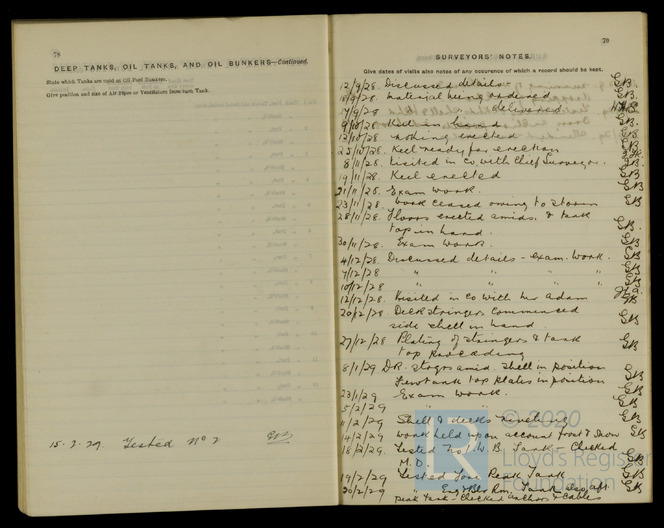 78
DEEP TANKS, OIL TANKS, AND OIL BUNKERS—Continued.
State which Tanks are used as Oil Fuel Bunkers.
Give position and size of Air Pipes or Ventilators from each Tank.
15.2.29. Tested No 2 GB
79
SURVEYORS' NOTES.
Give dates of visits also notes of any occurence of which a record should be kept.
12/9/28. Discussed details GB.
18/9/28. Material being ordered GB.
delivered
9/10/28. Keel in hand GB.
12/10/28. nothing erected GB
25/10/28. Keel ready for erection GB
8/11/28. Visited in Co with Chief Surveyor. GB.
19/11/28. Keel erected GB
21/11/28. Exam work. GB
23/11/28. work ceased owing to storm GB
28/11/28. Floors erected amids. & tank
top in hand. GB.
30/11/28. Exam work. GB.
4/12/28. Discussed details - exam. work. GB
7/12/28 " " " " GB
10/12/28 " " " " GB
12/12/28. Visited in Co with Mr Adam GB
20/12/28 Deck stringers commenced
side shell in hand GB
27/12/28 Plating of stringers & tank
top proceeding GB
8/1/29 Dk. stngrs amid. shell in position GB
Few tank top plates in position GB
23/1/29 Exam work. GB
5/2/29 " " GB
11/2/29 Shell & decks riveting GB
14/2/29 work held up on account frost & snow GB
18/2/29. Tested No 1 W.B. Tank - Checked
M.D. GB
19/2/29 Tested Fore Peak Tank GB
20/2/29 " Eng & Blr Rm. Tank also aft GB
peak tank - checked anchors & cables
© 2020
Lloyd's Register
Foundation